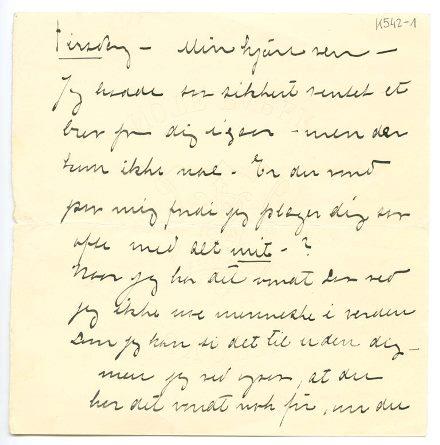 K542-1
Tirsdag – Min kjære ven –
Jeg havde saa sikkert ventet et
brev fra dig igaar – men der
kom ikke noe – Er du vond
paa mig fordi jeg plager dig saa
ofte med det mit – ?
Naar jeg har det vondt saa ved
jeg ikke noe menneske i verden
som jeg kan si det til uden dig –
men jeg ved ogsaa, at du
har det vondt nok før, om du